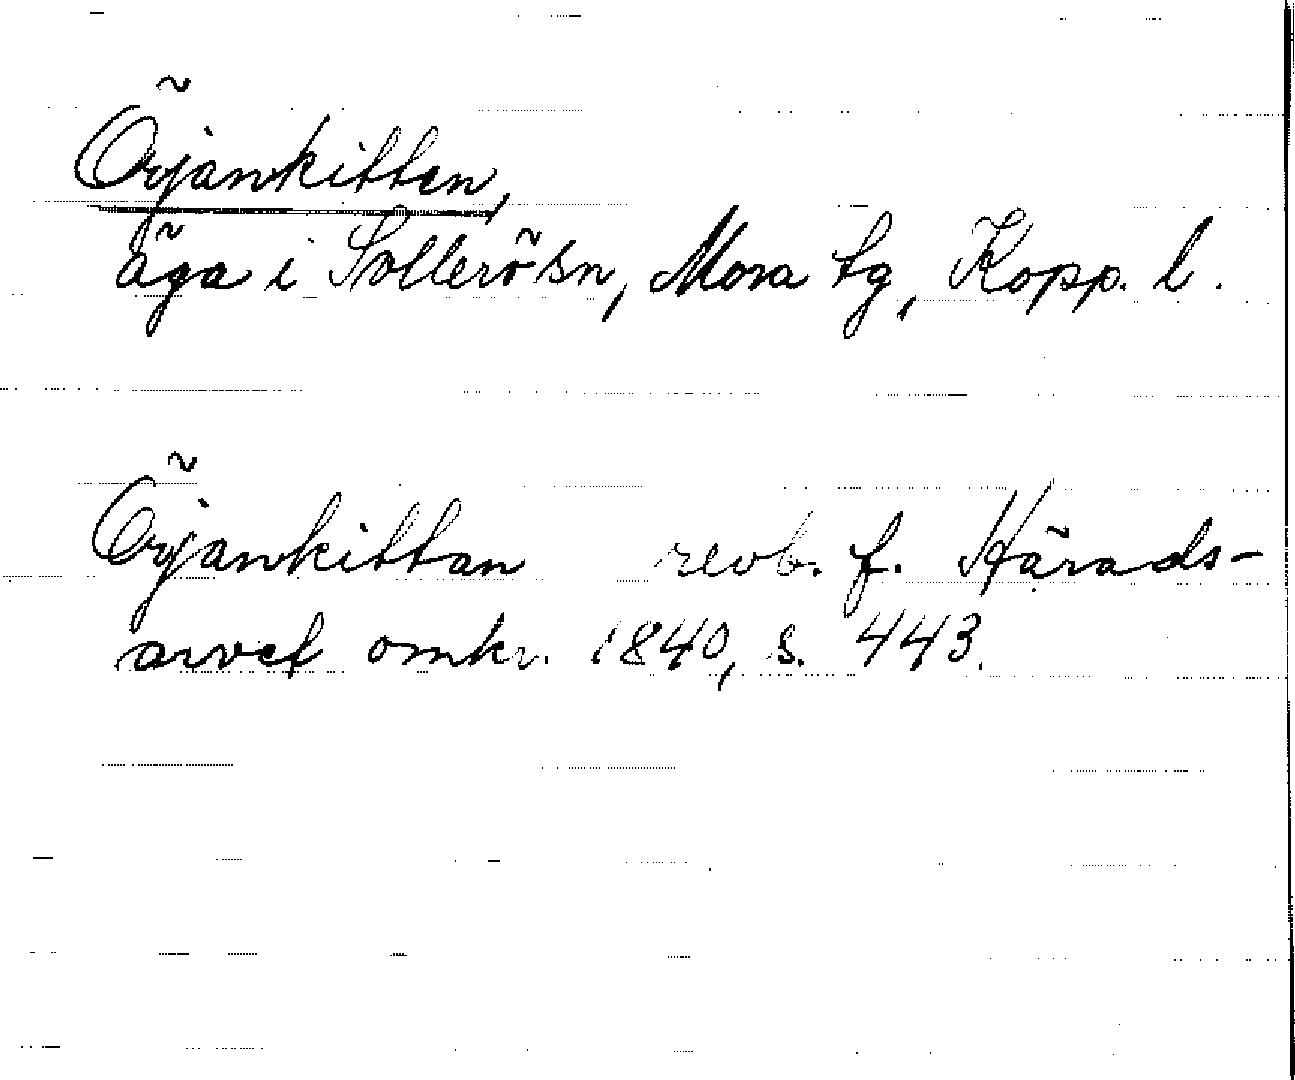 Örjankitten,
äga i Sollerö sn, Mora tg, Kopp. l.
Örjankittan revb. f. Härads-
arvet omkr. 1840, s. 443.